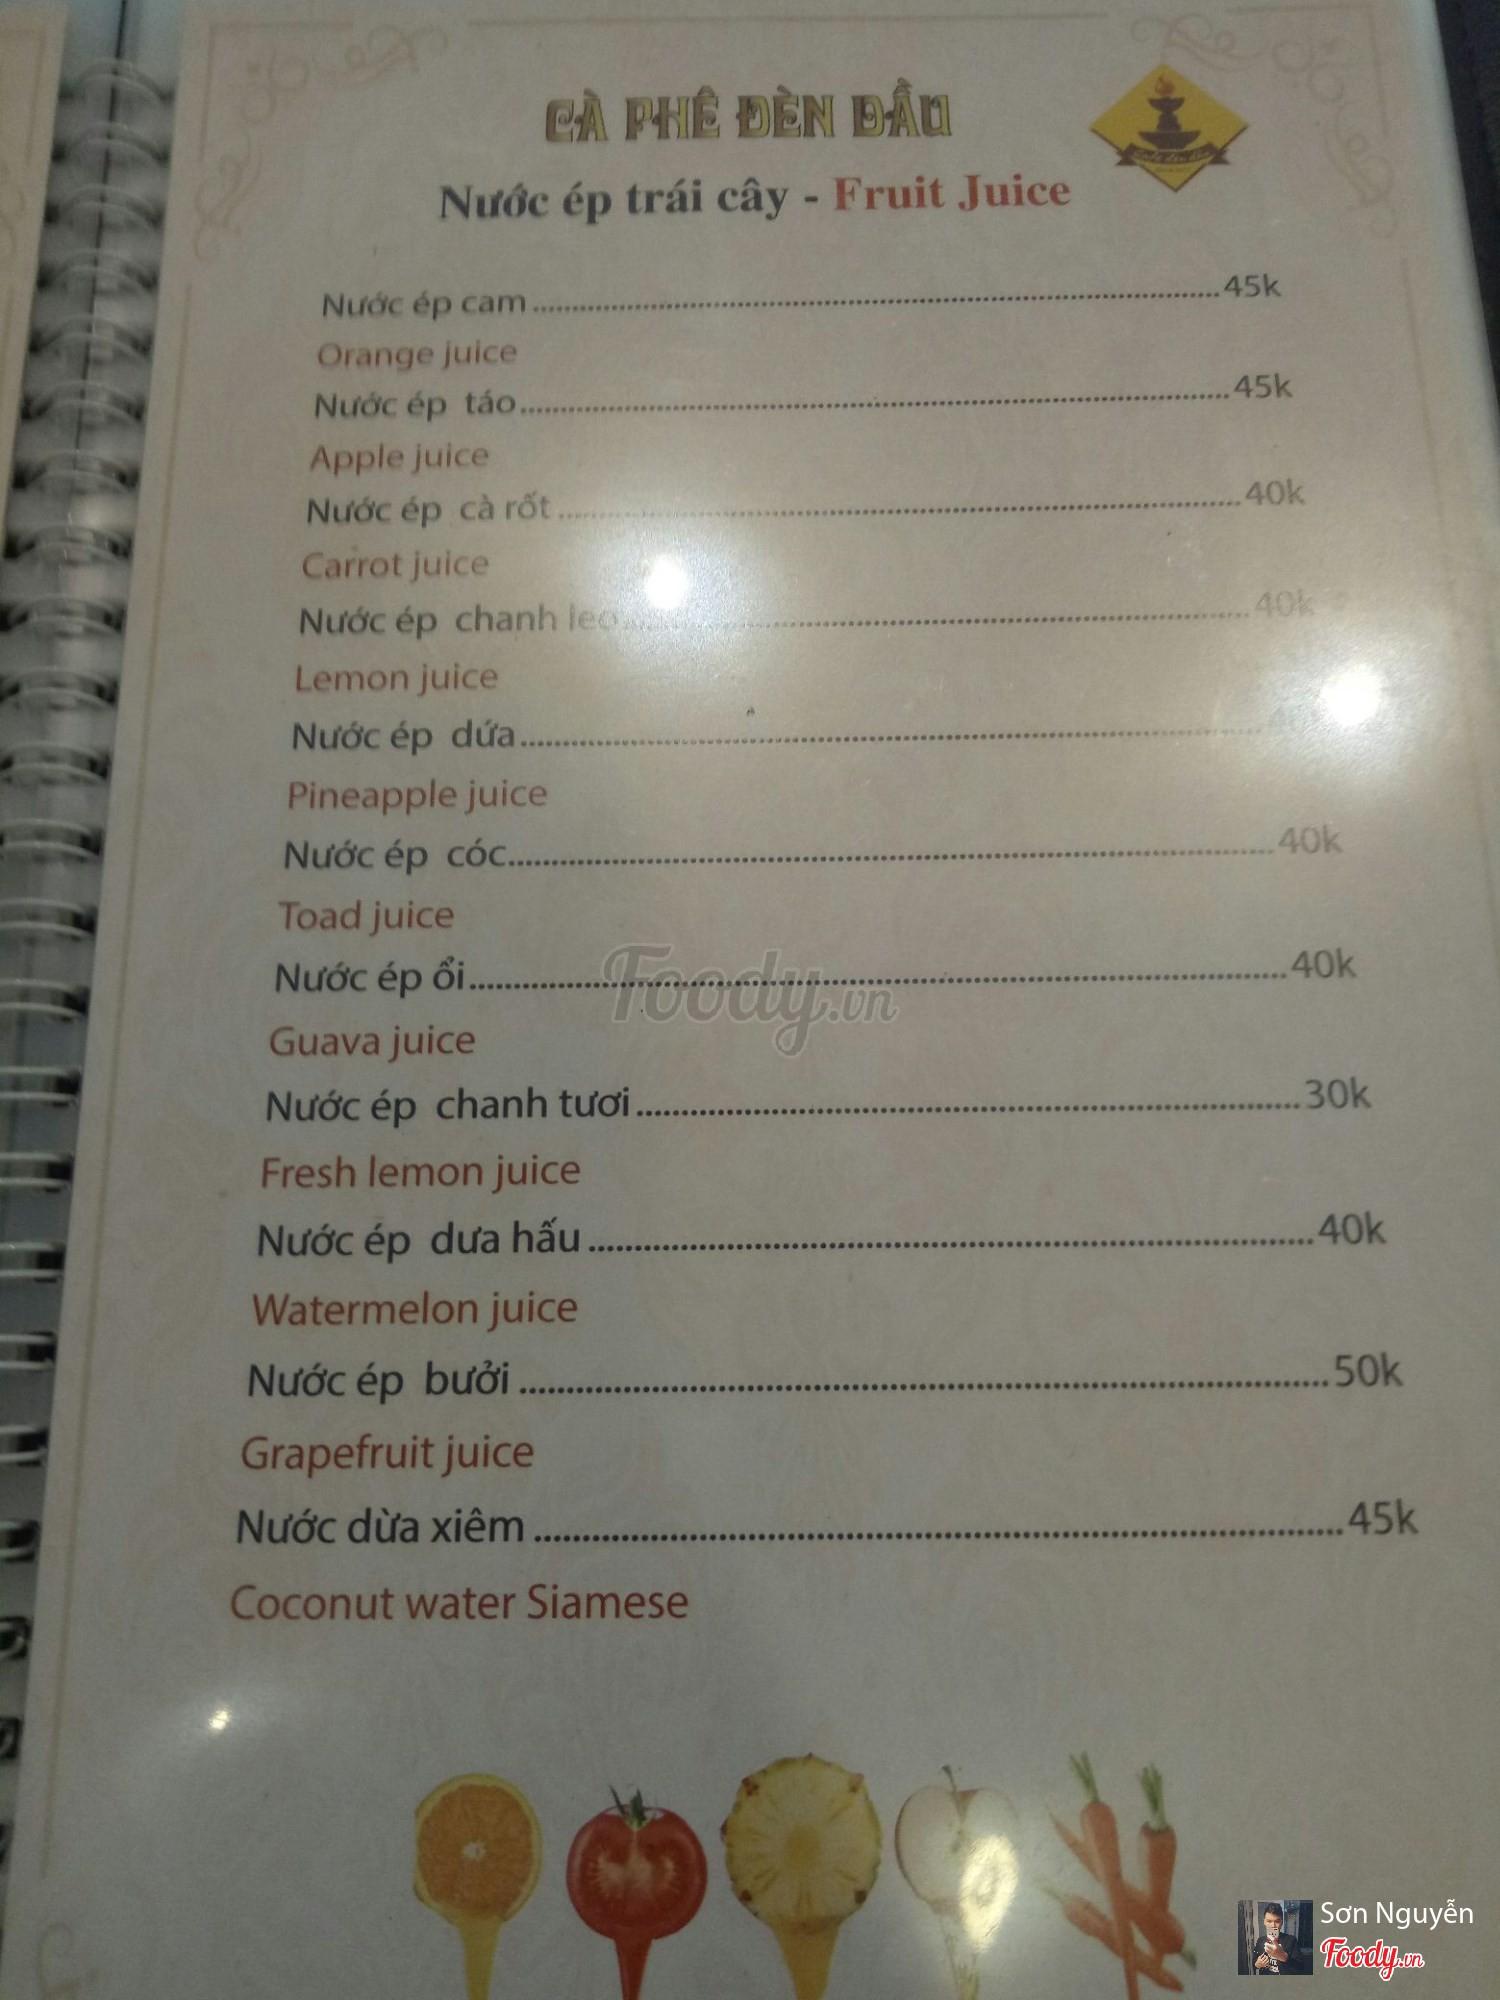 CÀ PHÊ ĐÈN DẦU
Nước ép trái cây - Fruit Juice
Nước ép cam 45k
Orange juice
Nước ép táo 45k
Apple juice
Nước ép cà rốt 40k
Carrot juice
Nước ép chanh leo 40k
Lemon juice
Nước ép dứa
Pineapple juice
Nước ép cóc 40k
Toad juice
Nước ép ổi 40k
Foody.vn
Guava juice
Nước ép chanh tươi 30k
Fresh lemon juice
Nước ép dưa hấu 40k
Watermelon juice
Nước ép bưởi 50k
Grapefruit juice
Nước dừa xiêm 45k
Coconut water Siamese
Sơn Nguyễn
Foody.vn